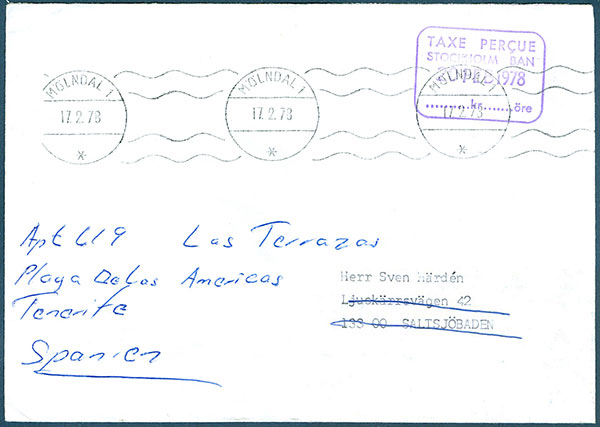 TAXE PERÇUE
STOCKHOLM BAN
1978
kr öre
MÖLNDAL 1 MÖLNDAL 1 MÖLNDAL 1
17.2.78 17.2.78 17.2.78
Apt 619 Las Terrazas
Playa De Las Americas
Tenerife
Spanien
Herr Sven Härdén
Ljuskärrsvägen 42
133 00 SALTSJÖBADEN